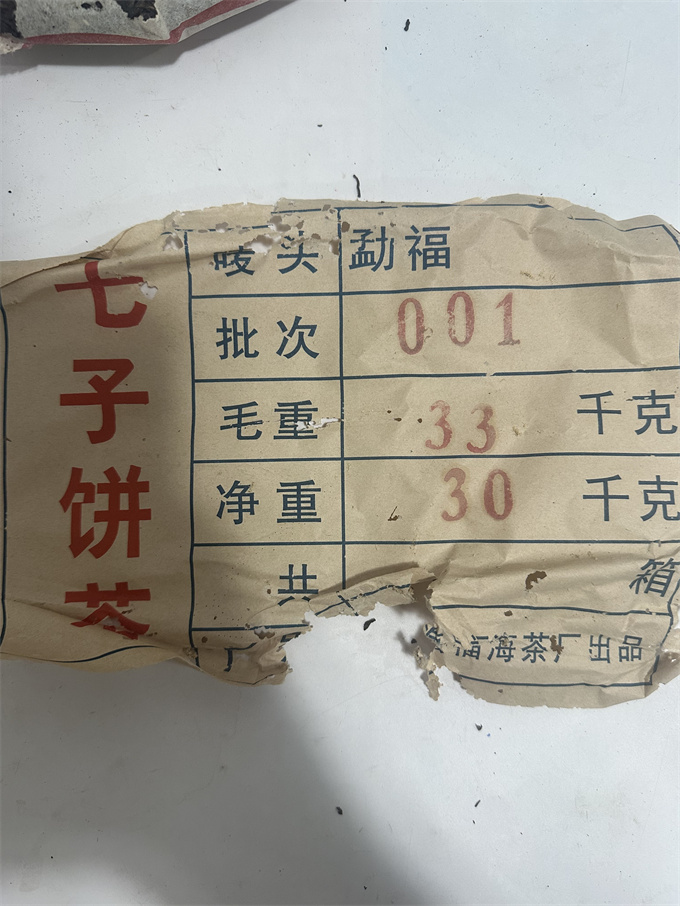 七子饼茶
唛头 勐福
批次 001
毛重 33 千克
净重 30 千克
共 箱
福海茶厂出品